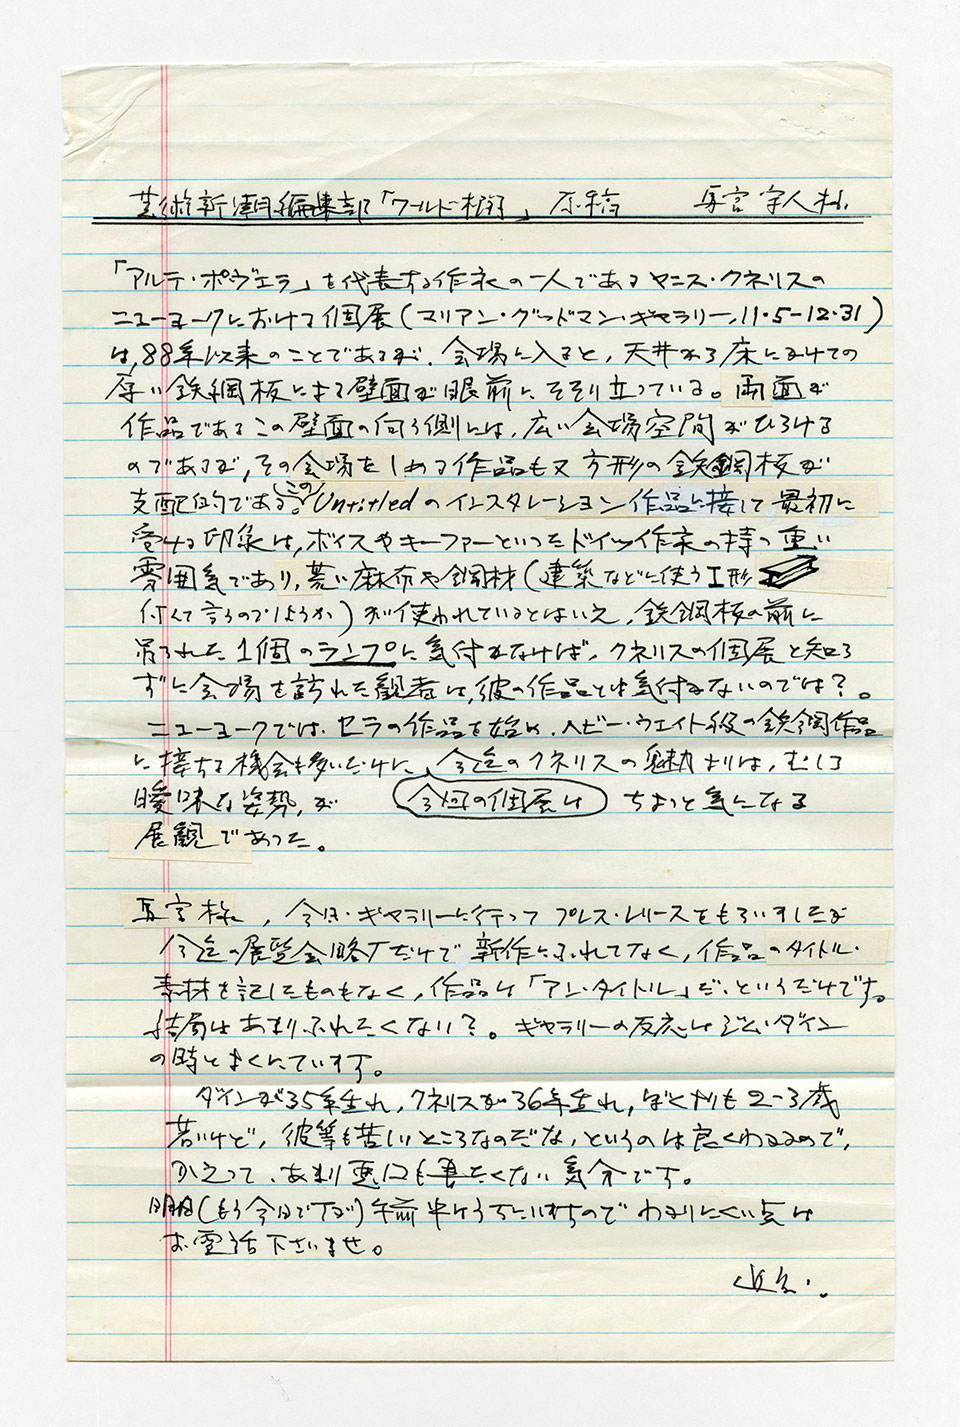 芸術新潮編集部「ワールド欄」 原稿
「アルテ・ポヴェラ」を代表する作家の一人であるヤニス・クネリスの
ニューヨークにおける個展(マリアン・グッドマン・ギャラリー, 11・5-12・31)
は, 88年以来のことであるが、会場に入ると, 天井から床にかけての
厚い鉄鋼板による壁面が眼前にそそり立っている。両面が
作品であるこの壁面の向う側には, 広い会場空間がひろける
のであるが, その会場をしめる作品も又方形の鉄鋼板が
支配的である。この Untitled のインスタレーション作品に接して最初に
受ける印象は, ボイスやキーファーといったドイツ作家の持つ重い
雰囲気であり, 荒い麻布や鋼材(建築などに使うI形
付くて言うのでしょうか)が使われているとはいえ, 鉄鋼板の前に
吊られた1個のランプに気付かなければ, クネリスの個展と知ら
ずに会場を訪れた観者は, 彼の作品とは気付かないのでは?。
ニューヨークでは、セラの作品を始め, ヘビー・ウェイト級の鉄鋼作品
に接する機会も多いだけに, 今迄のクネリスの魅力よりは, むしろ
曖昧な姿勢, が 今回の個展は ちょっと気になる
展観であった。
今日・ギャラリーに行って プレス・レリースをもらいましたが
今迄の展覧会略歴だけで新作にふれてなく, 作品のタイトル・
素材を記したものもなく, 作品は「アン・タイトル」だ、というだけです。
結局はあまりふれたくない?。ギャラリーの反応はジム・ダイン
の時とよくにています。
ダインが35年生れ, クネリスが36年生れ, ぼくよりも2-3歳
若いけど, 彼等も苦しいところなのだな、というのは良くわかるので,
かえって、あまり悪口も書たくない気分です。
明朝(もう今日ですが)午前中はうちにいますので わかりにくい点は
お電話下さいませ。